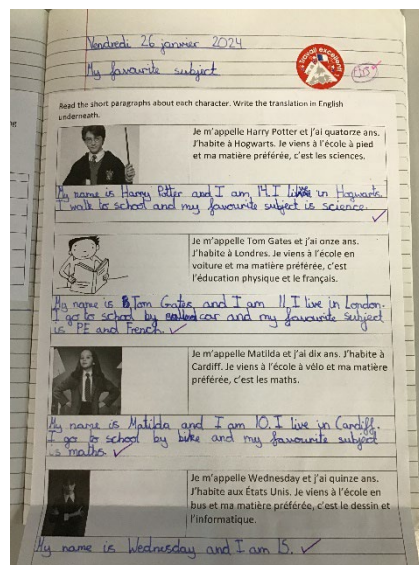 Vendredi 26 janvier 2024
My favourite subject
Travail excellent
Read the short paragraphs about each character. Write the translation in English
underneath.
Je m'appelle Harry Potter et j'ai quatorze ans.
J'habite à Hogwarts. Je viens à l'école à pied
et ma matière préférée, c'est les sciences.
My name is Harry Potter and I am 14. I live in Hogwarts.
I walk to school and my favourite subject is science.
Je m'appelle Tom Gates et j'ai onze ans.
J'habite à Londres. Je viens à l'école en
voiture et ma matière préférée, c'est
l'éducation physique et le français.
My name is Tom Gates and I am 11. I live in London.
I go to school by car and my favourite subject
is PE and French.
Je m'appelle Matilda et j'ai dix ans. J'habite à
Cardiff. Je viens à l'école à vélo et ma matière
préférée, c'est les maths.
My name is Matilda and I am 10. I live in Cardiff.
I go to school by bike and my favourite subject
is maths.
Je m'appelle Wednesday et j'ai quinze ans.
J'habite aux États Unis. Je viens à l'école en
bus et ma matière préférée, c'est le dessin et
l'informatique.
My name is Wednesday and I am 15.